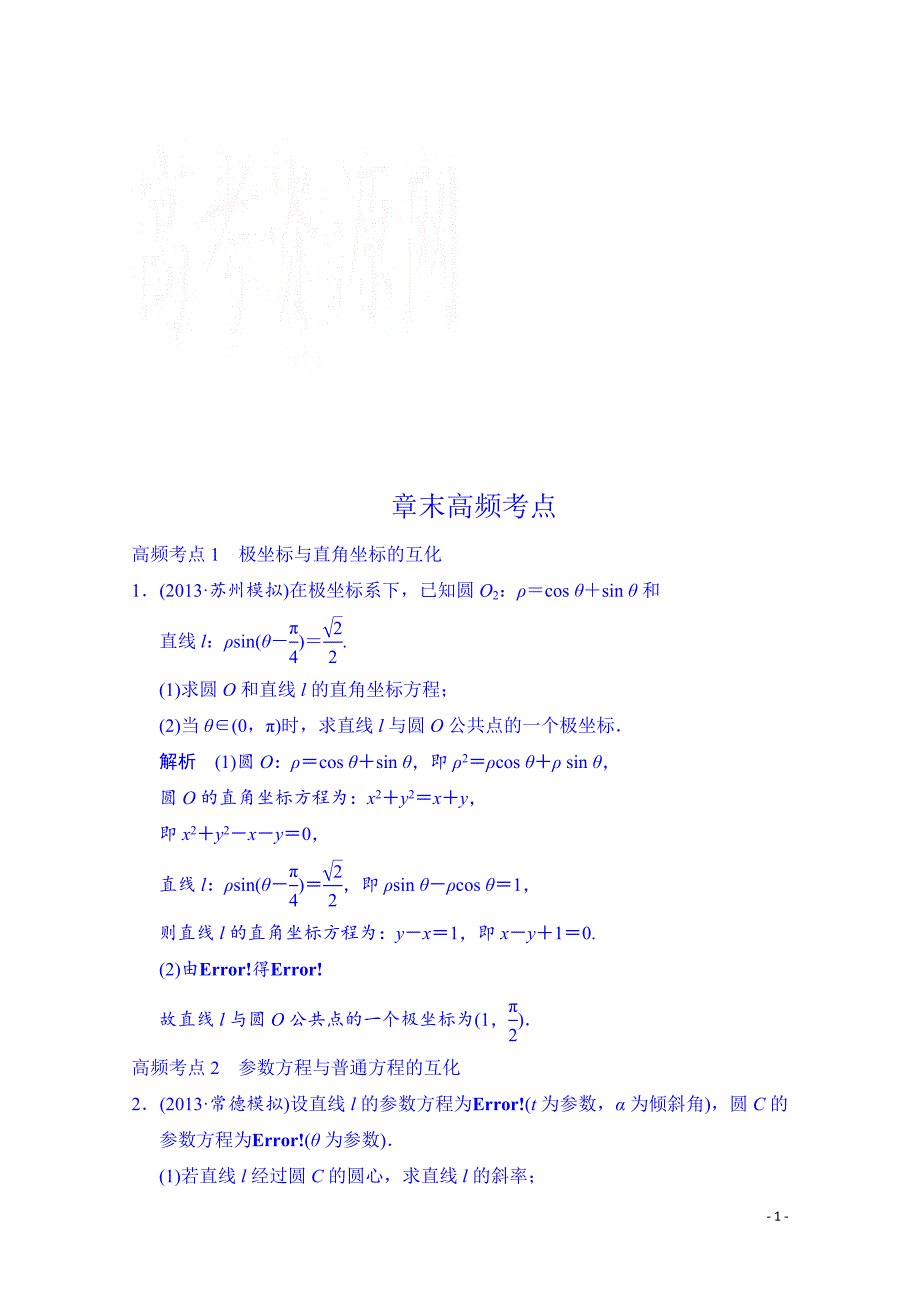 高考资源网
章末高频考点
高频考点1　极坐标与直角坐标的互化
1．(2013·苏州模拟)在极坐标系下，已知圆O2：ρ＝cos θ＋sin θ和
直线l：ρsin(θ－π/4)＝√2/2.
(1)求圆O和直线l的直角坐标方程；
(2)当θ∈(0，π)时，求直线l与圆O公共点的一个极坐标．
解析　(1)圆O：ρ＝cos θ＋sin θ，即ρ2＝ρcos θ＋ρ sin θ，
圆O的直角坐标方程为：x2＋y2＝x＋y，
即x2＋y2－x－y＝0，
直线l：ρsin(θ－π/4)＝√2/2，即ρsin θ－ρcos θ＝1，
则直线l的直角坐标方程为：y－x＝1，即x－y＋1＝0.
(2)由Error!得Error!
故直线l与圆O公共点的一个极坐标为(1，π/2)．
高频考点2　参数方程与普通方程的互化
2．(2013·常德模拟)设直线l的参数方程为Error!(t为参数，α为倾斜角)，圆C的
参数方程为Error!(θ为参数)．
(1)若直线l经过圆C的圆心，求直线l的斜率；
- 1 -